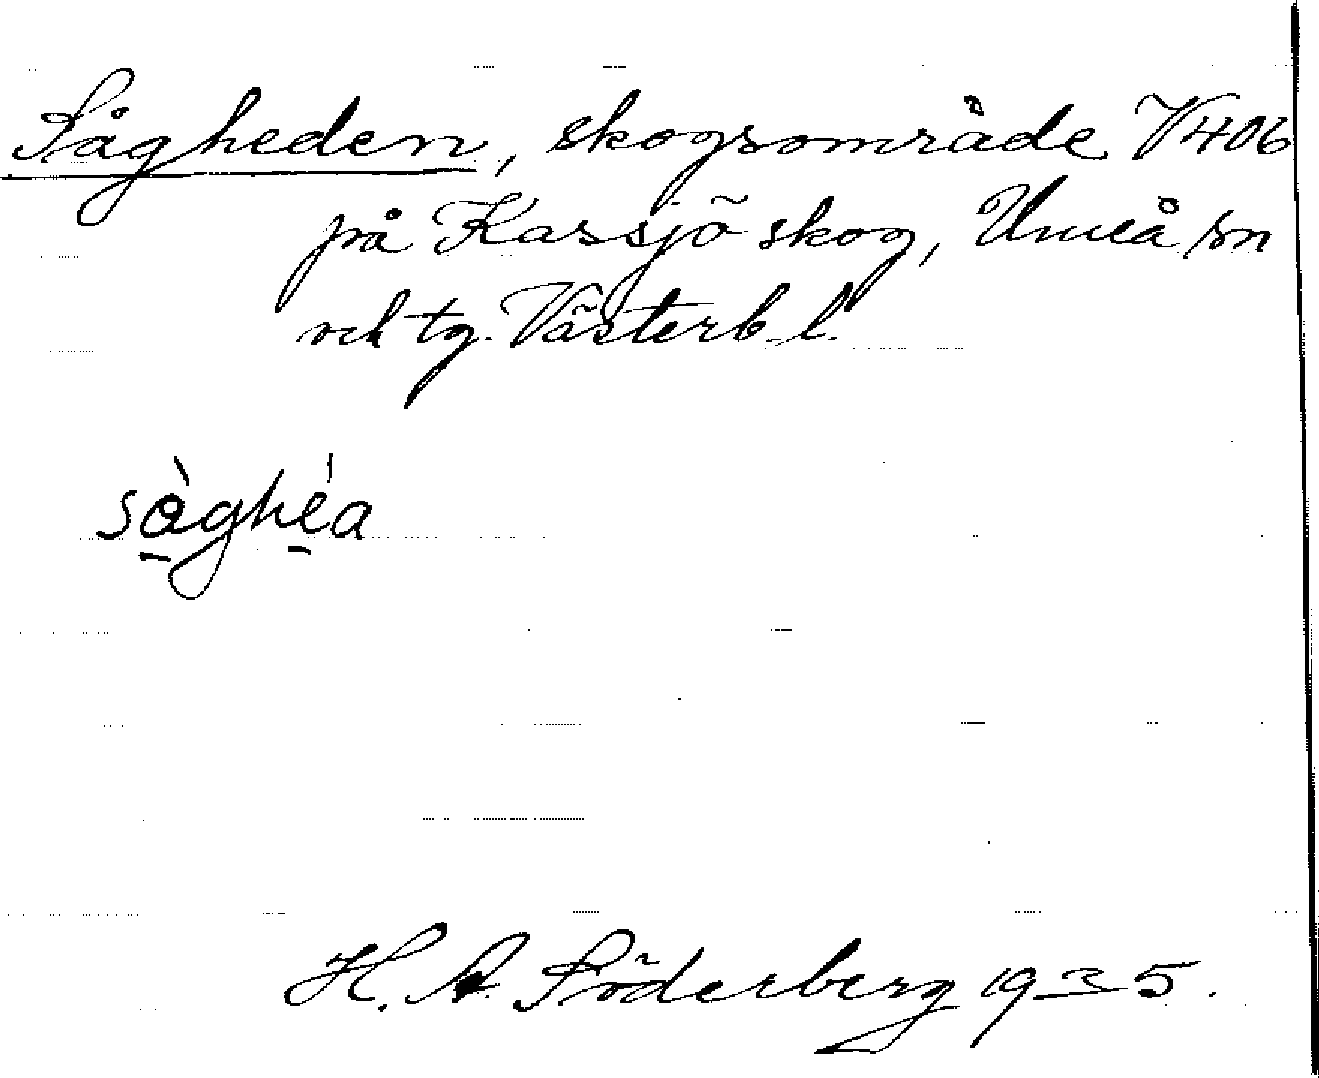 Sågheden, skogsområde V406
på Kassjö skog, Umeå sn
och tg. Västerb. l.
så̀ghéa
H. A. Söderberg 1935.